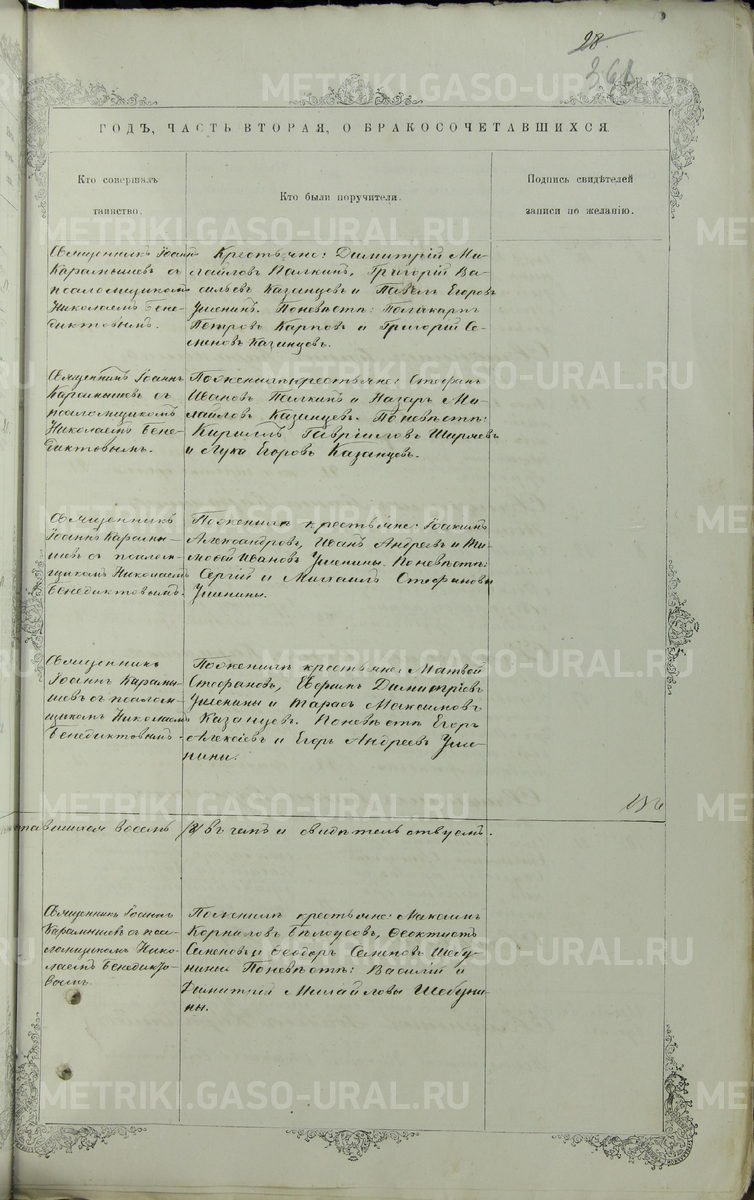 28.
ГОДЪ, ЧАСТЬ ВТОРАЯ, О БРАКОСОЧЕТАВШИХСЯ.
Кто совершалъ
таинство.
Кто были поручители.
Подпись свидѣтелей
записи по желанію.
Священникъ Іоаннъ
Карамышевъ съ
псаломщикомъ
Николаемъ Бене-
диктовымъ.
Крестьяне: Димитрій Ми-
хайловъ Палкинъ, Григорій Ва-
сильевъ Казанцевъ и Павелъ Егоровъ
Уженинъ. Поневѣстѣ: Поликарпъ
Петровъ Карповъ и Григорій Се-
меновъ Казанцевъ.
Священникъ Іоаннъ
Карамышевъ съ
псаломщикомъ
Николаемъ Бене-
диктовымъ.
Пожениху крестьяне: Стефанъ
Ивановъ Палкинъ и Назаръ Ми-
хайловъ Казанцевъ. Поневѣстѣ:
Кириллъ Гавріиловъ Ширяевъ
и Лука Егоровъ Казанцевъ.
Священникъ
Іоаннъ Карамы-
шевъ съ псалом-
щикомъ Николаемъ
Бенедиктовымъ.
Пожениху крестьяне: Іоакимъ
Александровъ, Иванъ Андреевъ и Ти-
мофей Ивановъ Уженины. Поневѣстѣ:
Сергій и Михаилъ Стефановы
Уженины.
Священникъ
Іоаннъ Карамы-
шевъ съ псалом-
щикомъ Николаемъ
Бенедиктовымъ.
Пожениху крестьяне: Матвей
Стефановъ, Димитріевъ
Уженины и Тарасъ Максимовъ
Казанцевъ. Поневѣстѣ Егоръ
Алексѣевъ и Егоръ Андреевъ Уже-
нины.
тавшихся восемь
и свидѣтельствуемъ.
Священникъ Іоаннъ
Карамышевъ съ пса-
ломщикомъ Нико-
лаемъ Бенедикто-
вымъ.
Пожениху крестьяне: Максимъ
Корниловъ Бѣлоусовъ, Феоктистъ
Семеновъ и Феодоръ Семеновъ Шебу-
нины Поневѣстѣ: Василій и
Димитрій Михайловы Шебуни-
ны.
METRIKI.GASO-URAL.RU